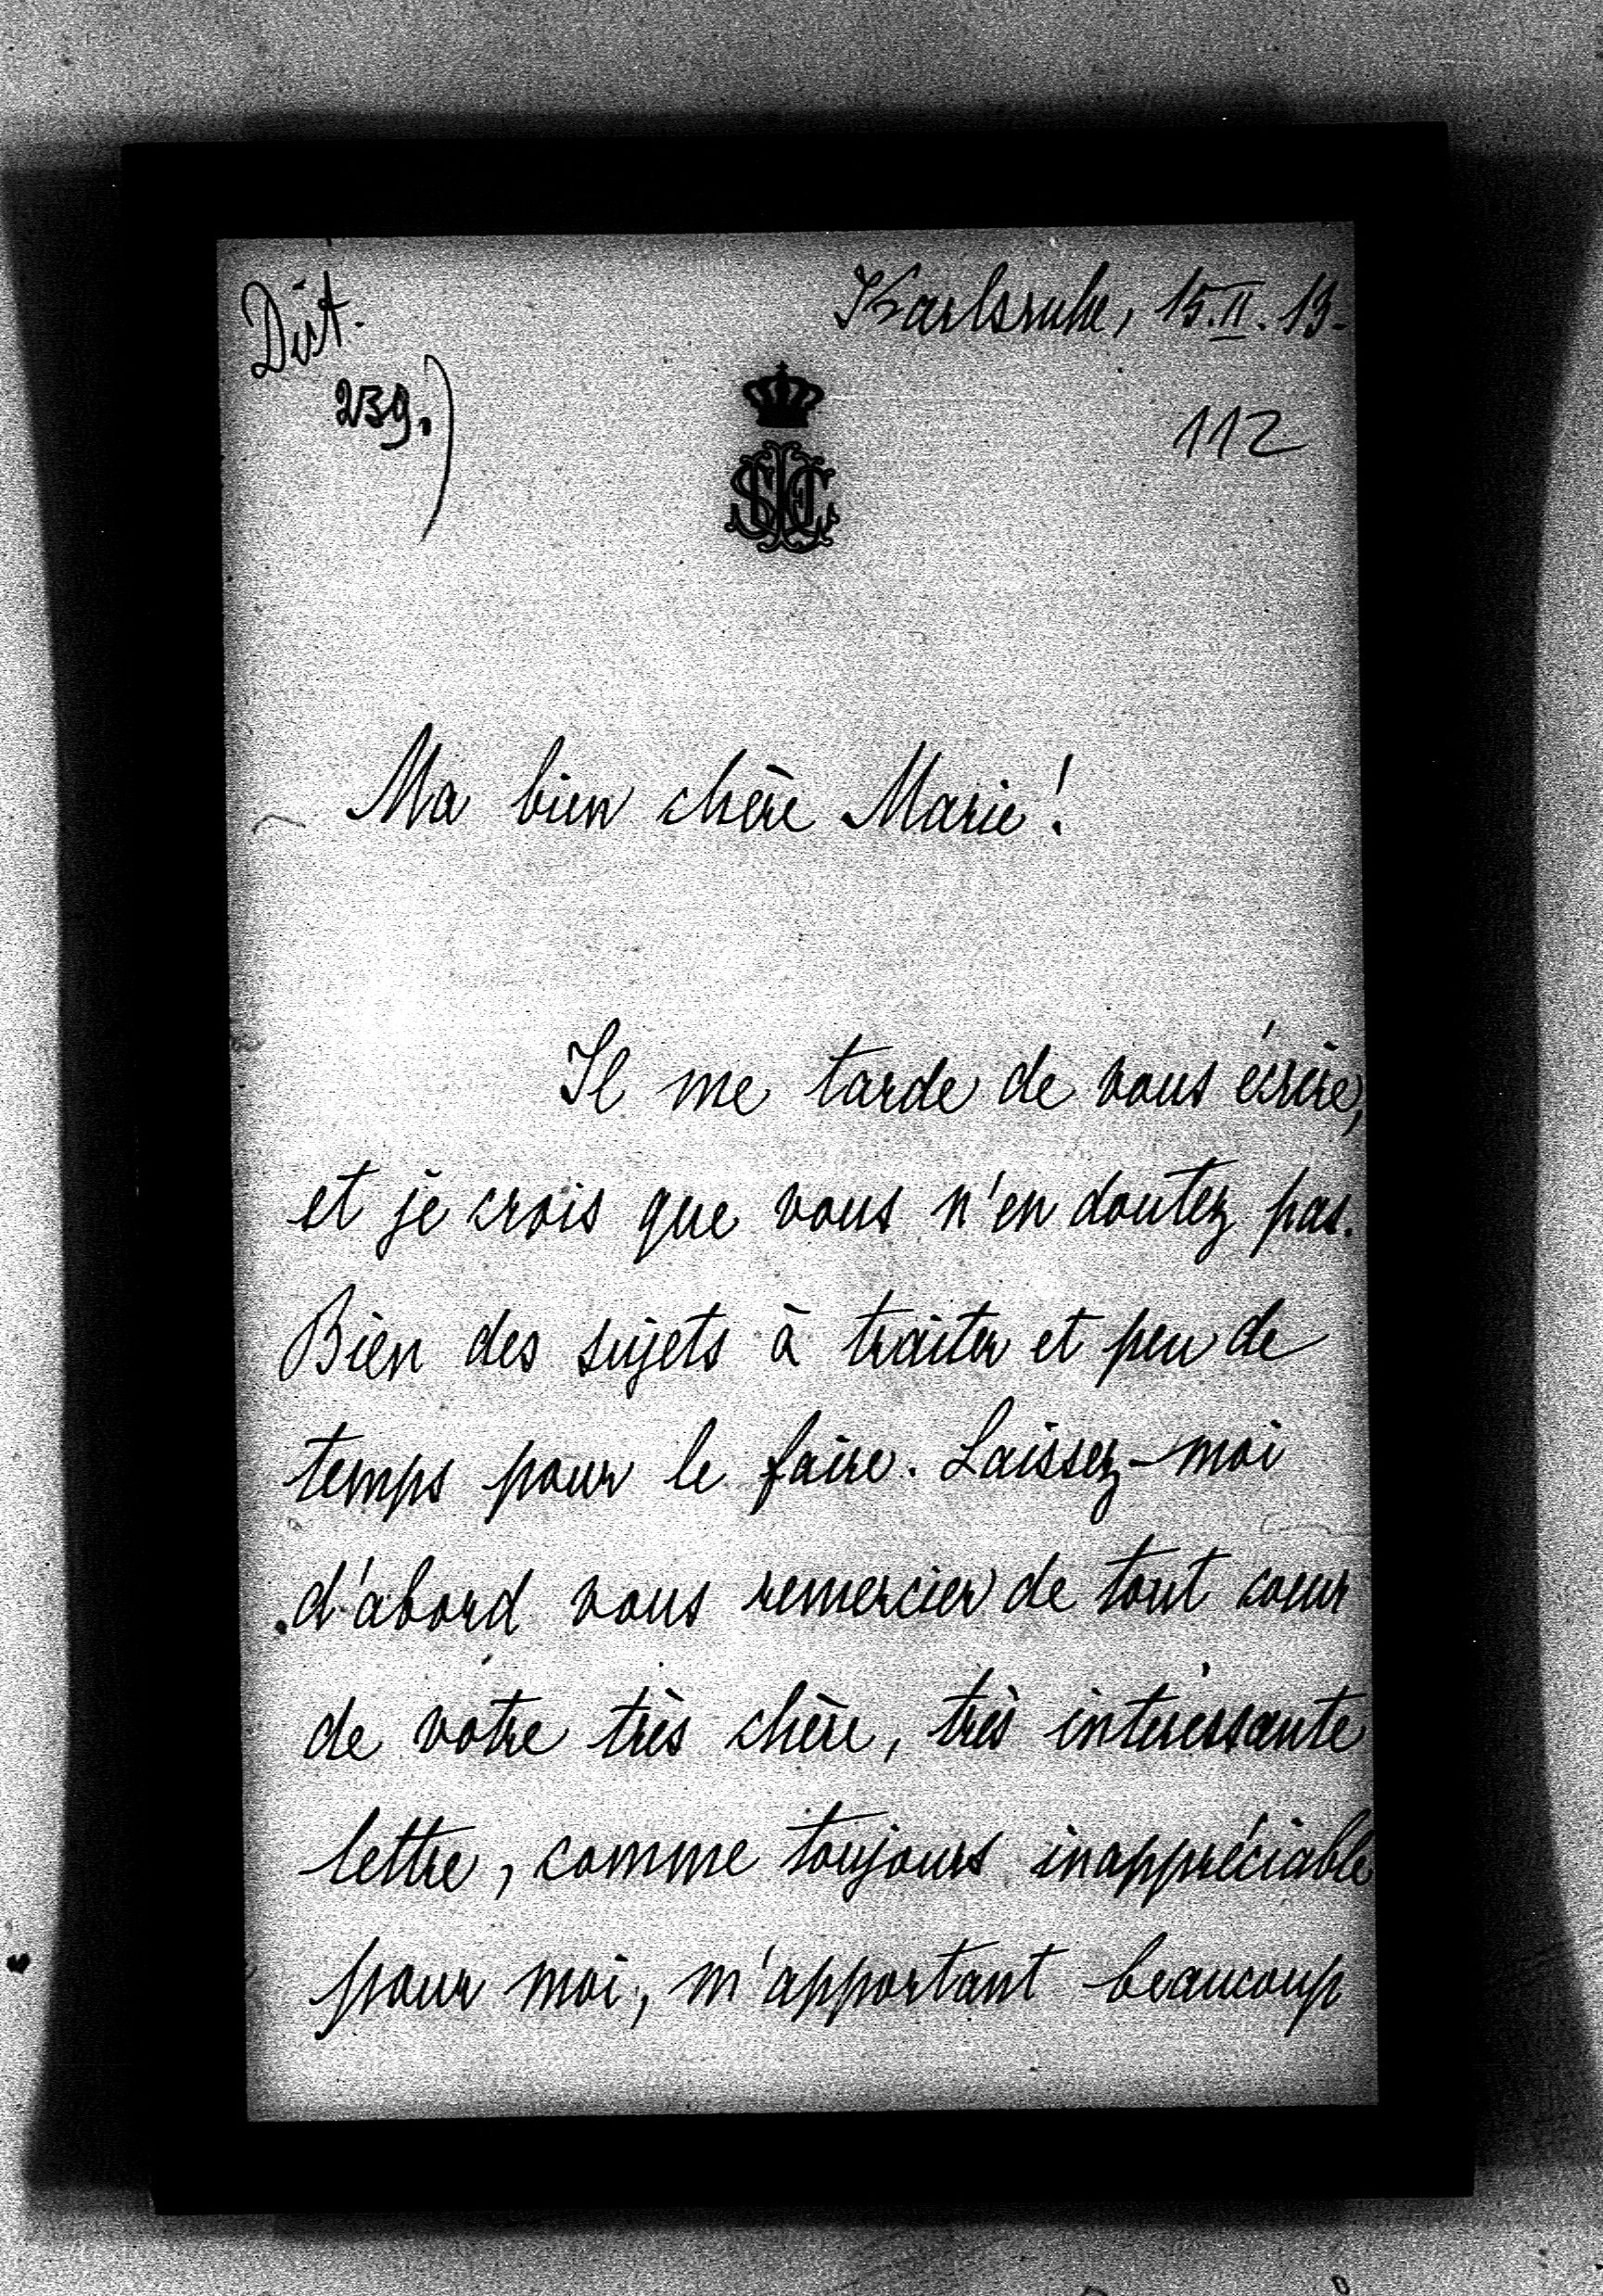 Dict.
Karlsruhe, 15.II.13.
239.)
112
Ma bien chère Marie!
Il me tarde de vous écrire,
et je crois que vous n'en doutez pas.
Bien des sujets à traiter et peu de
temps pour le faire. Laissez-moi
d'abord vous remercier de tout coeur
de votre très chère, très intéressante
lettre, comme toujours inappréciable
pour moi, m'apportant beaucoup